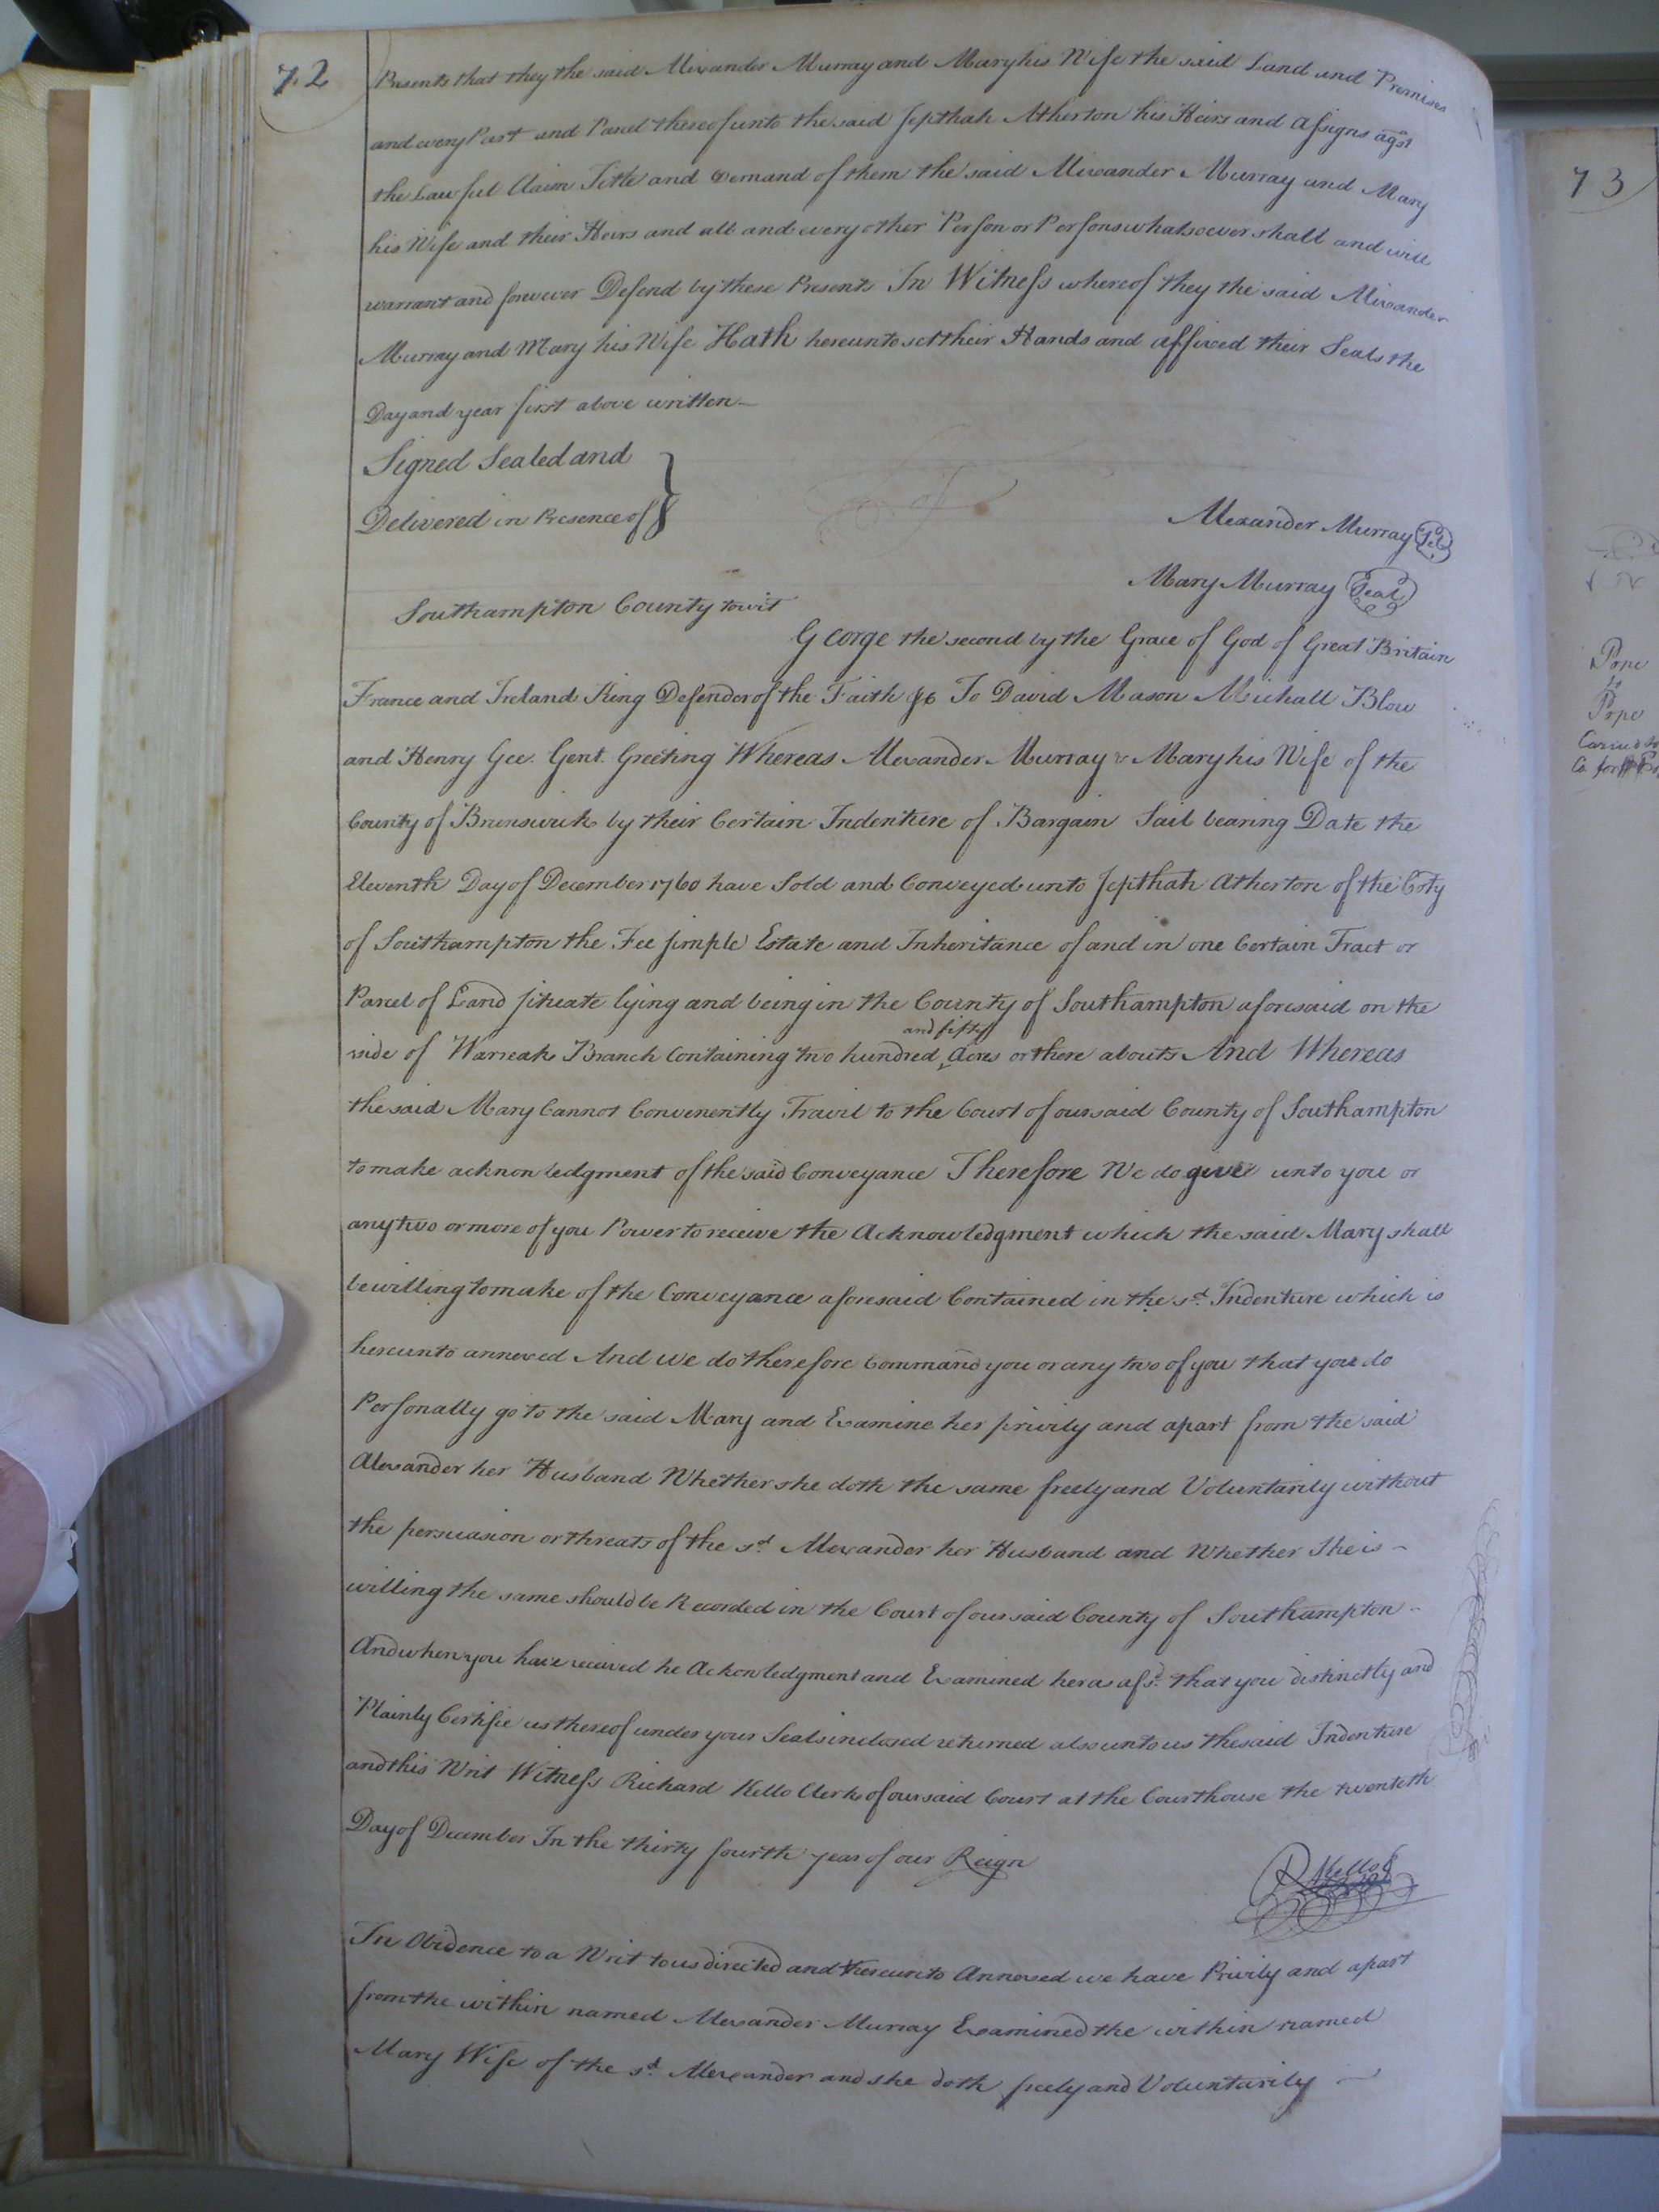 72
Presents that they the said Alexander Murray and Mary his Wife the said Land and Premises
and every Part and Parcel thereof unto the said Jepthah Atherton his Heirs and Assigns agst
the Lawful Claim Title and Demand of them the said Alexander Murray and Mary
his Wife and their Heirs and all and every other Person or Persons whatsoever shall and will
warrant and forever Defend by these Presents In Witness whereof they the said Alexander
Murray and Mary his Wife Hath hereunto set their Hands and affixed their Seals the
Day and year first above written
Signed Sealed and
Delivered in Presence of
Alexander Murray Sel
Mary Murray Seal
Southampton County towit
George the second by the Grace of God of Great Britain
France and Ireland King Defender of the Faith &c To David Mason Michall Blow
and Henry Gee. Gent. Greeting Whereas Alexander Murray & Mary his Wife of the
County of Brunswick by their Certain Indenture of Bargain Sail bearing Date the
Eleventh Day of December 1760 have Sold and Conveyed unto Jepthah Atherton of the Coty
of Southampton the Fee simple Estate and Inheritance of and in one Certain Tract or
Parcel of Land situate lying and being in the County of Southampton aforesaid on the
side of Warreak Branch Containing two hundred and fifty Acres or there abouts And Whereas
the said Mary Cannot Convenently Travil to the Court of our said County of Southampton
to make acknowledgment of the said Conveyance Therefore We do give unto you or
any two or more of you Power to receive the Acknowledgment which the said Mary shall
be willing to make of the Conveyance aforesaid Contained in the sd. Indenture which is
hereunto annexed And we do therefore Command you or any two of you that you do
Personally go to the said Mary and Examine her privily and apart from the said
Alexander her Husband Whether she doth the same freely and Voluntarily without
the persuasion or threats of the sd. Alexander her Husband and Whether She is
willing the same should be Recorded in the Court of our said County of Southampton
And when you have received he Acknowledgment and Examined her as afsd. that you distinctly and
Plainly Certifie us thereof under your Seals inclosed returned also unto us the said Indenture
and this Writ Witness Richard Kello Clerk of our said Court at the Courthouse the twenteth
Day of December In the thirty fourth year of our Reign
R Kello
In Obidence to a Writ to us directed and thereunto Annexed we have Privily and apart
from the within named Alexander Murray Examined the within named
Mary Wife of the sd. Alexander and she doth freely and Voluntarily
73
Pope
to
Pope